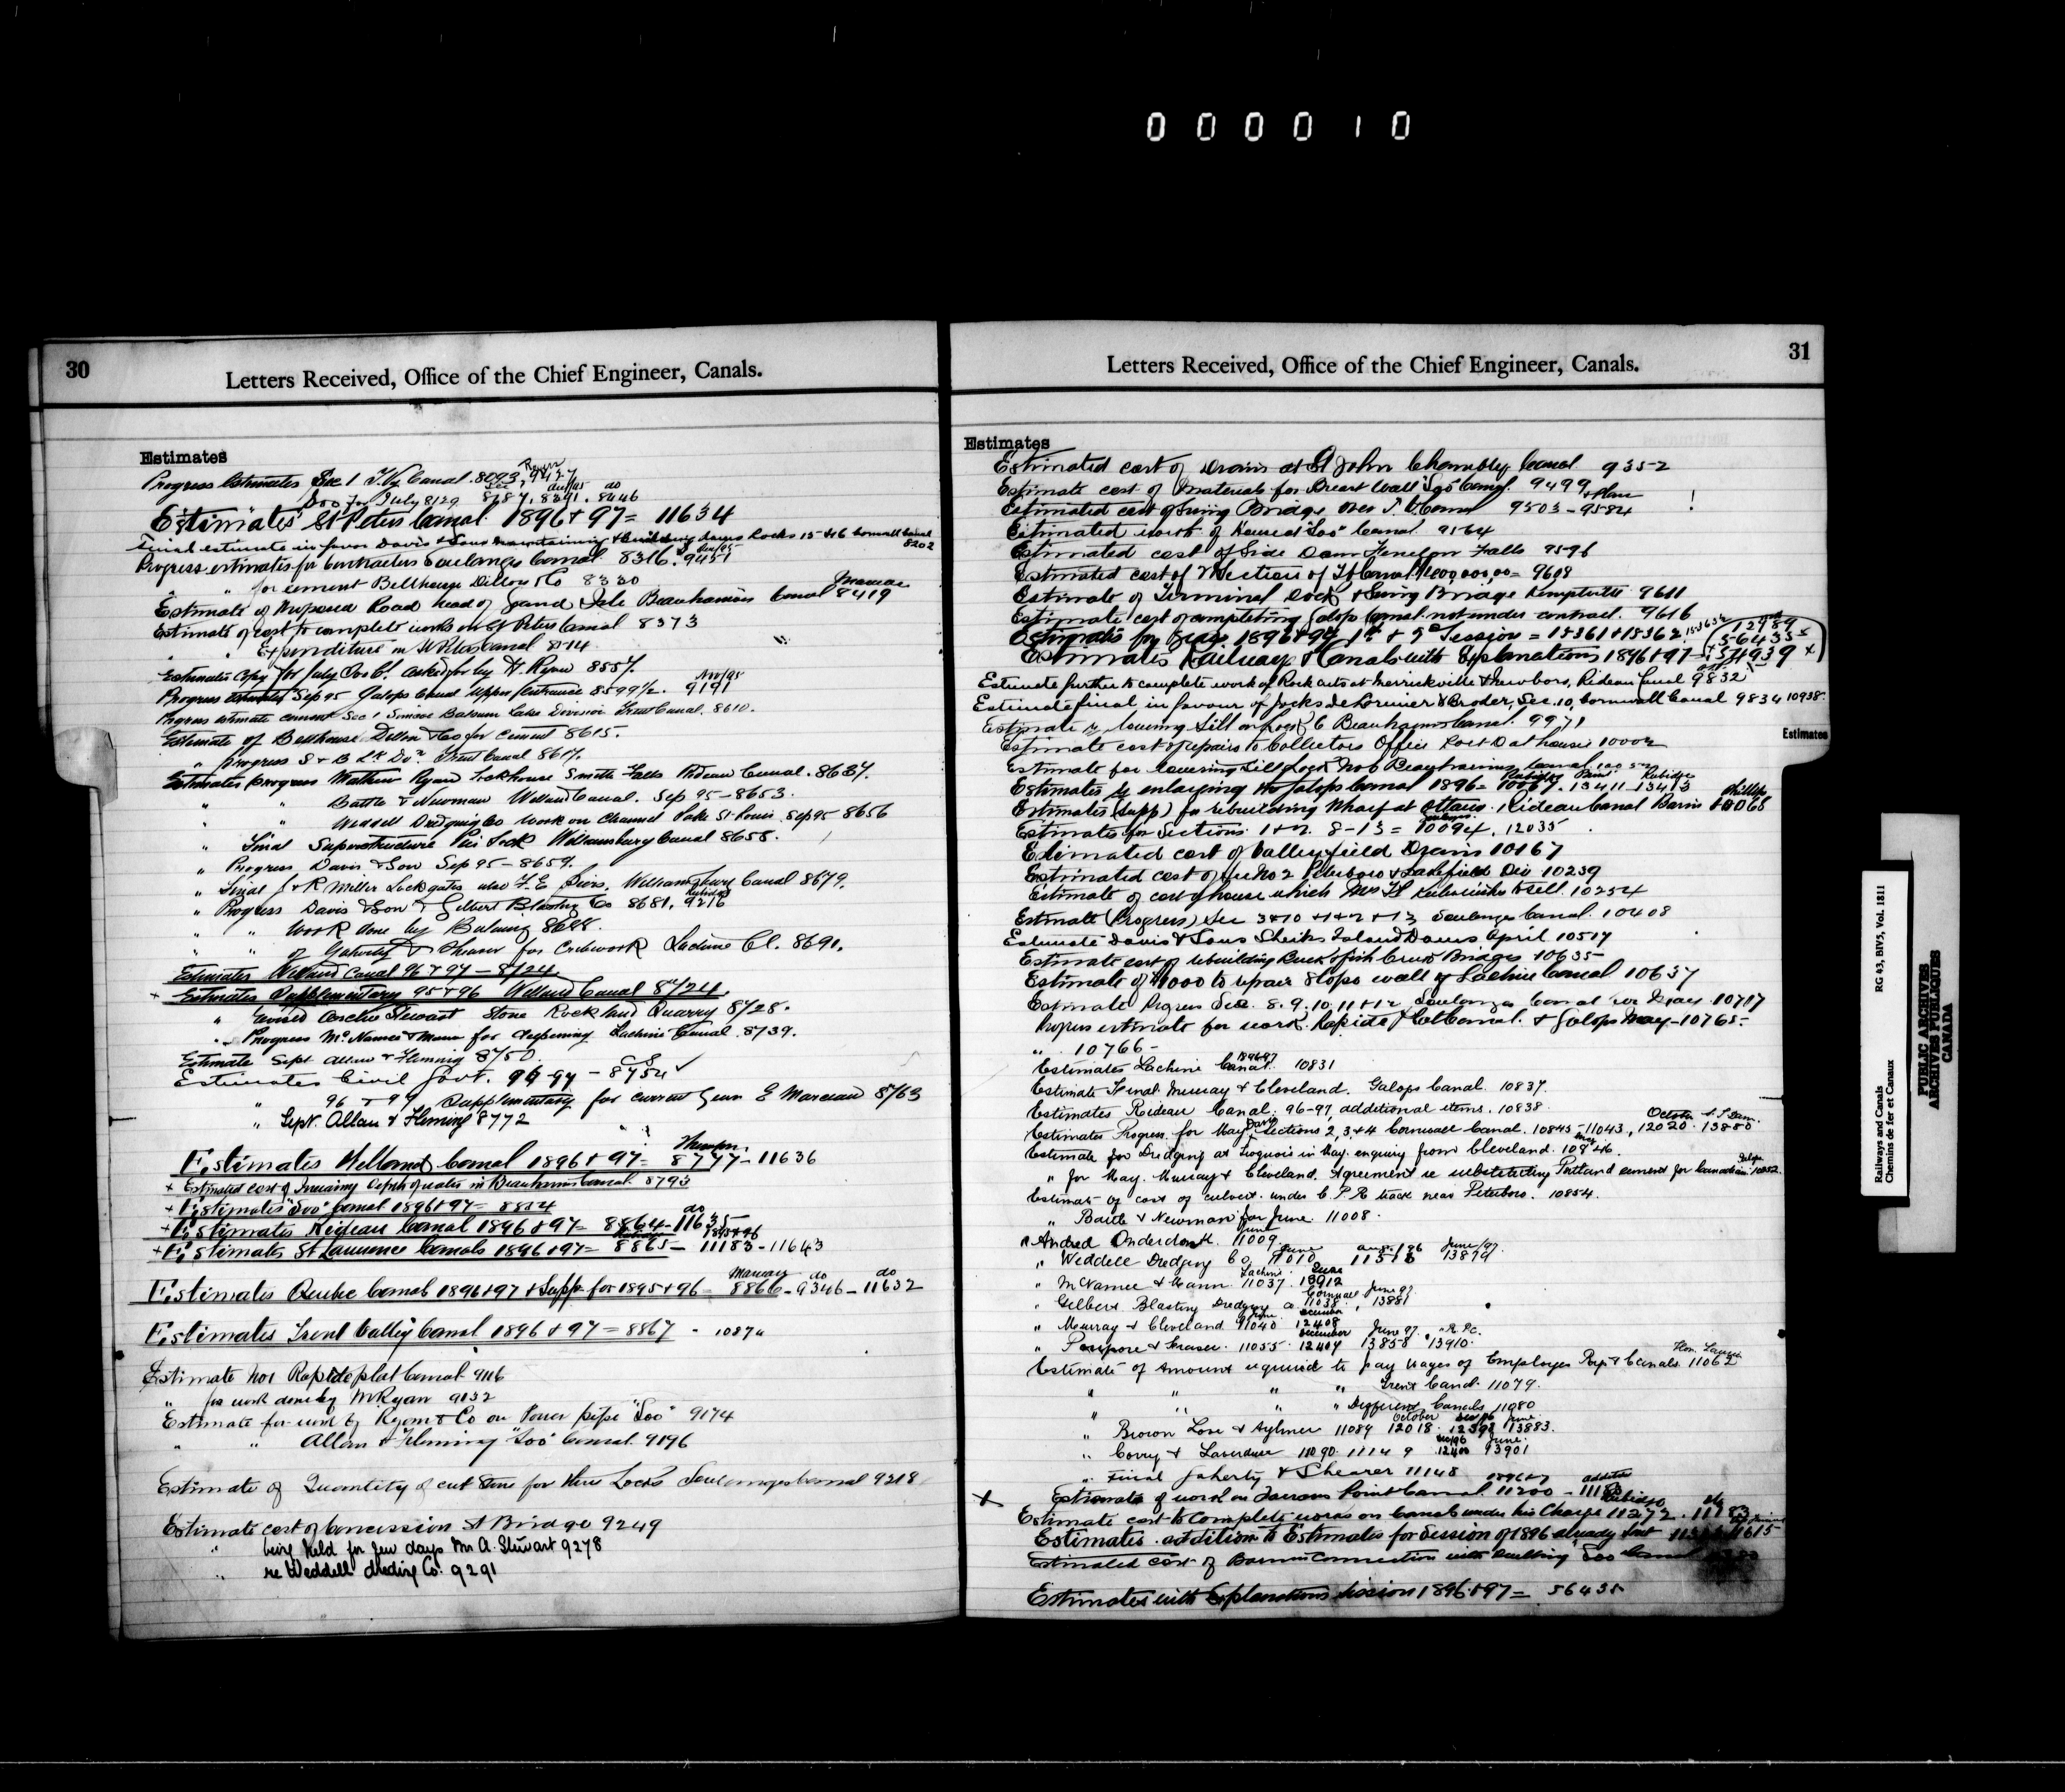 000010
30
Letters Received, Office of the Chief Engineer, Canals.
Estimates
Progress Estimates Sec 1 T.V. Canal 8093, 9427
Do for July 8129 8287, 8391, 8446
Estimates St Peters Canal 1896 & 97 = 11634
Final estimate in favor Davis & Sons maintaining & building Locks 15 & 16 Cornwall Canal 8202
Progress estimates for Contractors Soulanges Canal 8316, 9451
" " for cement Bellhouse Dillon & Co 8320
Estimate of Proposed Road head of Grand Isle Beauharnois Canal 8419 Marceau
Estimate of cost to complete works on St Peters Canal 8373
" " Expenditure on St Peters Canal
Estimates Copy for July asked for by H. Ryan 8557.
Progress estimates Sep 95 Galops Canal Upper Entrance 8599½. 9191 Nov/95
Progress estimate cement Sec 1 Simcoe Balsam Lake Division Trent Canal. 8610.
Estimate of Bellhouse Dillon & Co for cement 8615.
" Progress S & B Lk Dn Trent Canal 8617.
Estimates progress Mathew Ryan Lockhouse Smiths Falls Rideau Canal. 8637.
" " Battle & Newman Welland Canal. Sep 95 - 8653.
" " Weddell Dredging Co work on Channel Lake St Louis Sep 95 8656
" Final Superstructure Pier Lock Williamsburg Canal 8658.
" Progress Davis & Son Sep 95 - 8659.
" Final J & R Miller Lock gates also F.E. Piers. Williamsburg Canal 8679.
" Progress Davis & Son & Gilbert Blasting Co 8681. 9216
" " Work done by 8688.
" " of & Shearer for Cribwork Lachine Cl. 8691.
Estimates Welland Canal 96 & 97 - 8724
+ Estimates Supplementary 95 & 96 Welland Canal 8724
" revised Archie Stewart Stone Rockland Quarry 8728.
" Progress McNamee & Mann for deepening Lachine Canal. 8739.
Estimate Sept Allan & Fleming 8750
Estimates Civil Govt. 96-97 - 8754 ✓
" 96 & 97 Supplementary for current year E Marceau 8763
" Sept. Allan & Fleming 8772
Estimates Welland Canal 1896 & 97 = 8777 - 11636
+ Estimated cost of Increasing depth of water in Beauharnois Canal 8793
+ Estimates "Soo" Canal 1896 & 97 = 8824
+ Estimates Rideau Canal 1896 & 97 = 8864 - 11635 do
+ Estimates St Lawrence Canals 1896 & 97 = 8865 - 11183 - 11643
Estimates Quebec Canals 1896 & 97 & Supp for 1895 & 96 - 8866 - 9346 - 11632 Marceau do do
Estimates Trent Valley Canal 1896 & 97 = 8867 -
Estimate No 1 Rapide plat Canal 9116
" for work done by M Ryan 9132
Estimate for work by Ryan & Co on Power pipe "Soo" 9174
" " Allan & Fleming "Soo" Canal. 9196
Estimate of Quantity of cut Stone for three Locks Soulanges Canal 9218
Estimate cost of Concession St Bridge 9249
" being held for few days Mr A. Stewart 9278
" re Weddell dredig Co. 9291
31
Letters Received, Office of the Chief Engineer, Canals.
Estimates
Estimated cost of Drains at St John Chambly Canal 9352
Estimate cost of Materials for Breast Wall "Soo" Canal. 9499
Estimated cost of Swing Bridge over T.V. Canal 9503 - 9584 & Plan !
Estimated worth of House at "Soo" Canal 9564
Estimated cost of Side Dam Fenelon Falls 9596
Estimated cost of Section of T V Canal 9608
Estimate of Terminal Dock & Swing Bridge Kemptville 9611
Estimate cost of completing Galops Canal not under contract. 9616
Estimates for Years 1896 & 97 1st & 2nd Session = 15361 & 15362
Estimates Railways & Canals with Explanations 1896 & 97
Estimate further to complete work of Rock cuts at Merrickville & Newboro, Rideau Canal 9832
Estimate final in favour of Jocks de Lorimier & Broder, Sec. 10, Cornwall Canal 9834 10938.
Estimate of lowering Sill on Lock 6 Beauharnois Canal. 9971
Estimate cost of repairs to Collectors Office Port Dalhousie 10002
Estimate for lowering Sill Lock No 6 Beauharnois Canal
Estimates of enlarging the Galops Canal 1896 = 10067. 13411 13413
Estimates (Supp) for rebuilding Wharf at Ottawa. Rideau Canal Basin 10068 Phillips
Estimates for Sections 1 & 2. 8-13 = 10094, 12035
Estimated cost of Valleyfield Drains 10167
Estimated cost of No 2 Peterboro & Lakefield Div 10239
Estimate of cost of house which to sell. 10254
Estimate (Progress) Sec 3 & 10 & 1 & 2 & 13 Soulanges Canal. 10408
Estimate Davis & Sons Sheiks Island Dams, April 10517
Estimate cost of rebuilding Buck & Fish Creek Bridges 10635
Estimate of $1000 to repair slope wall of Lachine Canal 10637
Estimate Progress Secs. 8. 9. 10. 11 & 12 Soulanges Canal for May 10717
Progress estimate for work. Rapide Plat Canal. & Galops May - 10765.
" 10766 -
Estimates Lachine Canal. 1896-97 10831
Estimate Final. Murray & Cleveland. Galops Canal. 10837.
Estimates Rideau Canal: 96-97, additional items. 10838.
Estimates Progress for May, Sections 2, 3, & 4 Cornwall Canal. 10845 - 11043, 12020. 13880
Estimate for Dredging at Iroquois in May. enquiry from Cleveland.
" for May. Murray & Cleveland. Agreement re substituting Portland cement for Canadian. Galops
Estimate of cost of culvert. under C.P.R. track near Peterboro. 10854.
" Battle & Newman for June. 11008.
" Andrew Onderdonk. June 11009.
" Weddell Dredging Co. June 11010 Aug/96 June/97. 13879
" McNamee & Mann. Lachine 11037. 13912
" Gilbert Blasting Dredging Co. 11038. Cornwall June 97 13881
" Murray & Cleveland 11040 12408 December
" Poupore & Fraser. 11055. 12409 December June 97. 13858 13910.
Estimate of Amount required to pay wages of Employees Rys & Canals. 11062 Hon. Laurier
" " " " Trent Canal. 11079.
" " " Different Canals 11080
" Brown Love & Aylmer 11089 October 12018. 12398 June 13883.
" Corry & Laverdure 11090. 11149 12400 June. 13901
" Final & Shearer 11148
x Estimate of work on Farrans Point Canal. 11200
Estimate cost to Complete works on Canals under his Charge 11272.
Estimates addition to Estimates for Session of 1896 already sent 11615
Estimated cost of connection with "Soo" Canal
Estimates with Explanations Session 1896 & 97 = 56435
Estimates
Railways and Canals
Chemins de fer et Canaux
RG 43, BIV5, Vol. 1811
PUBLIC ARCHIVES
ARCHIVES PUBLIQUES
CANADA